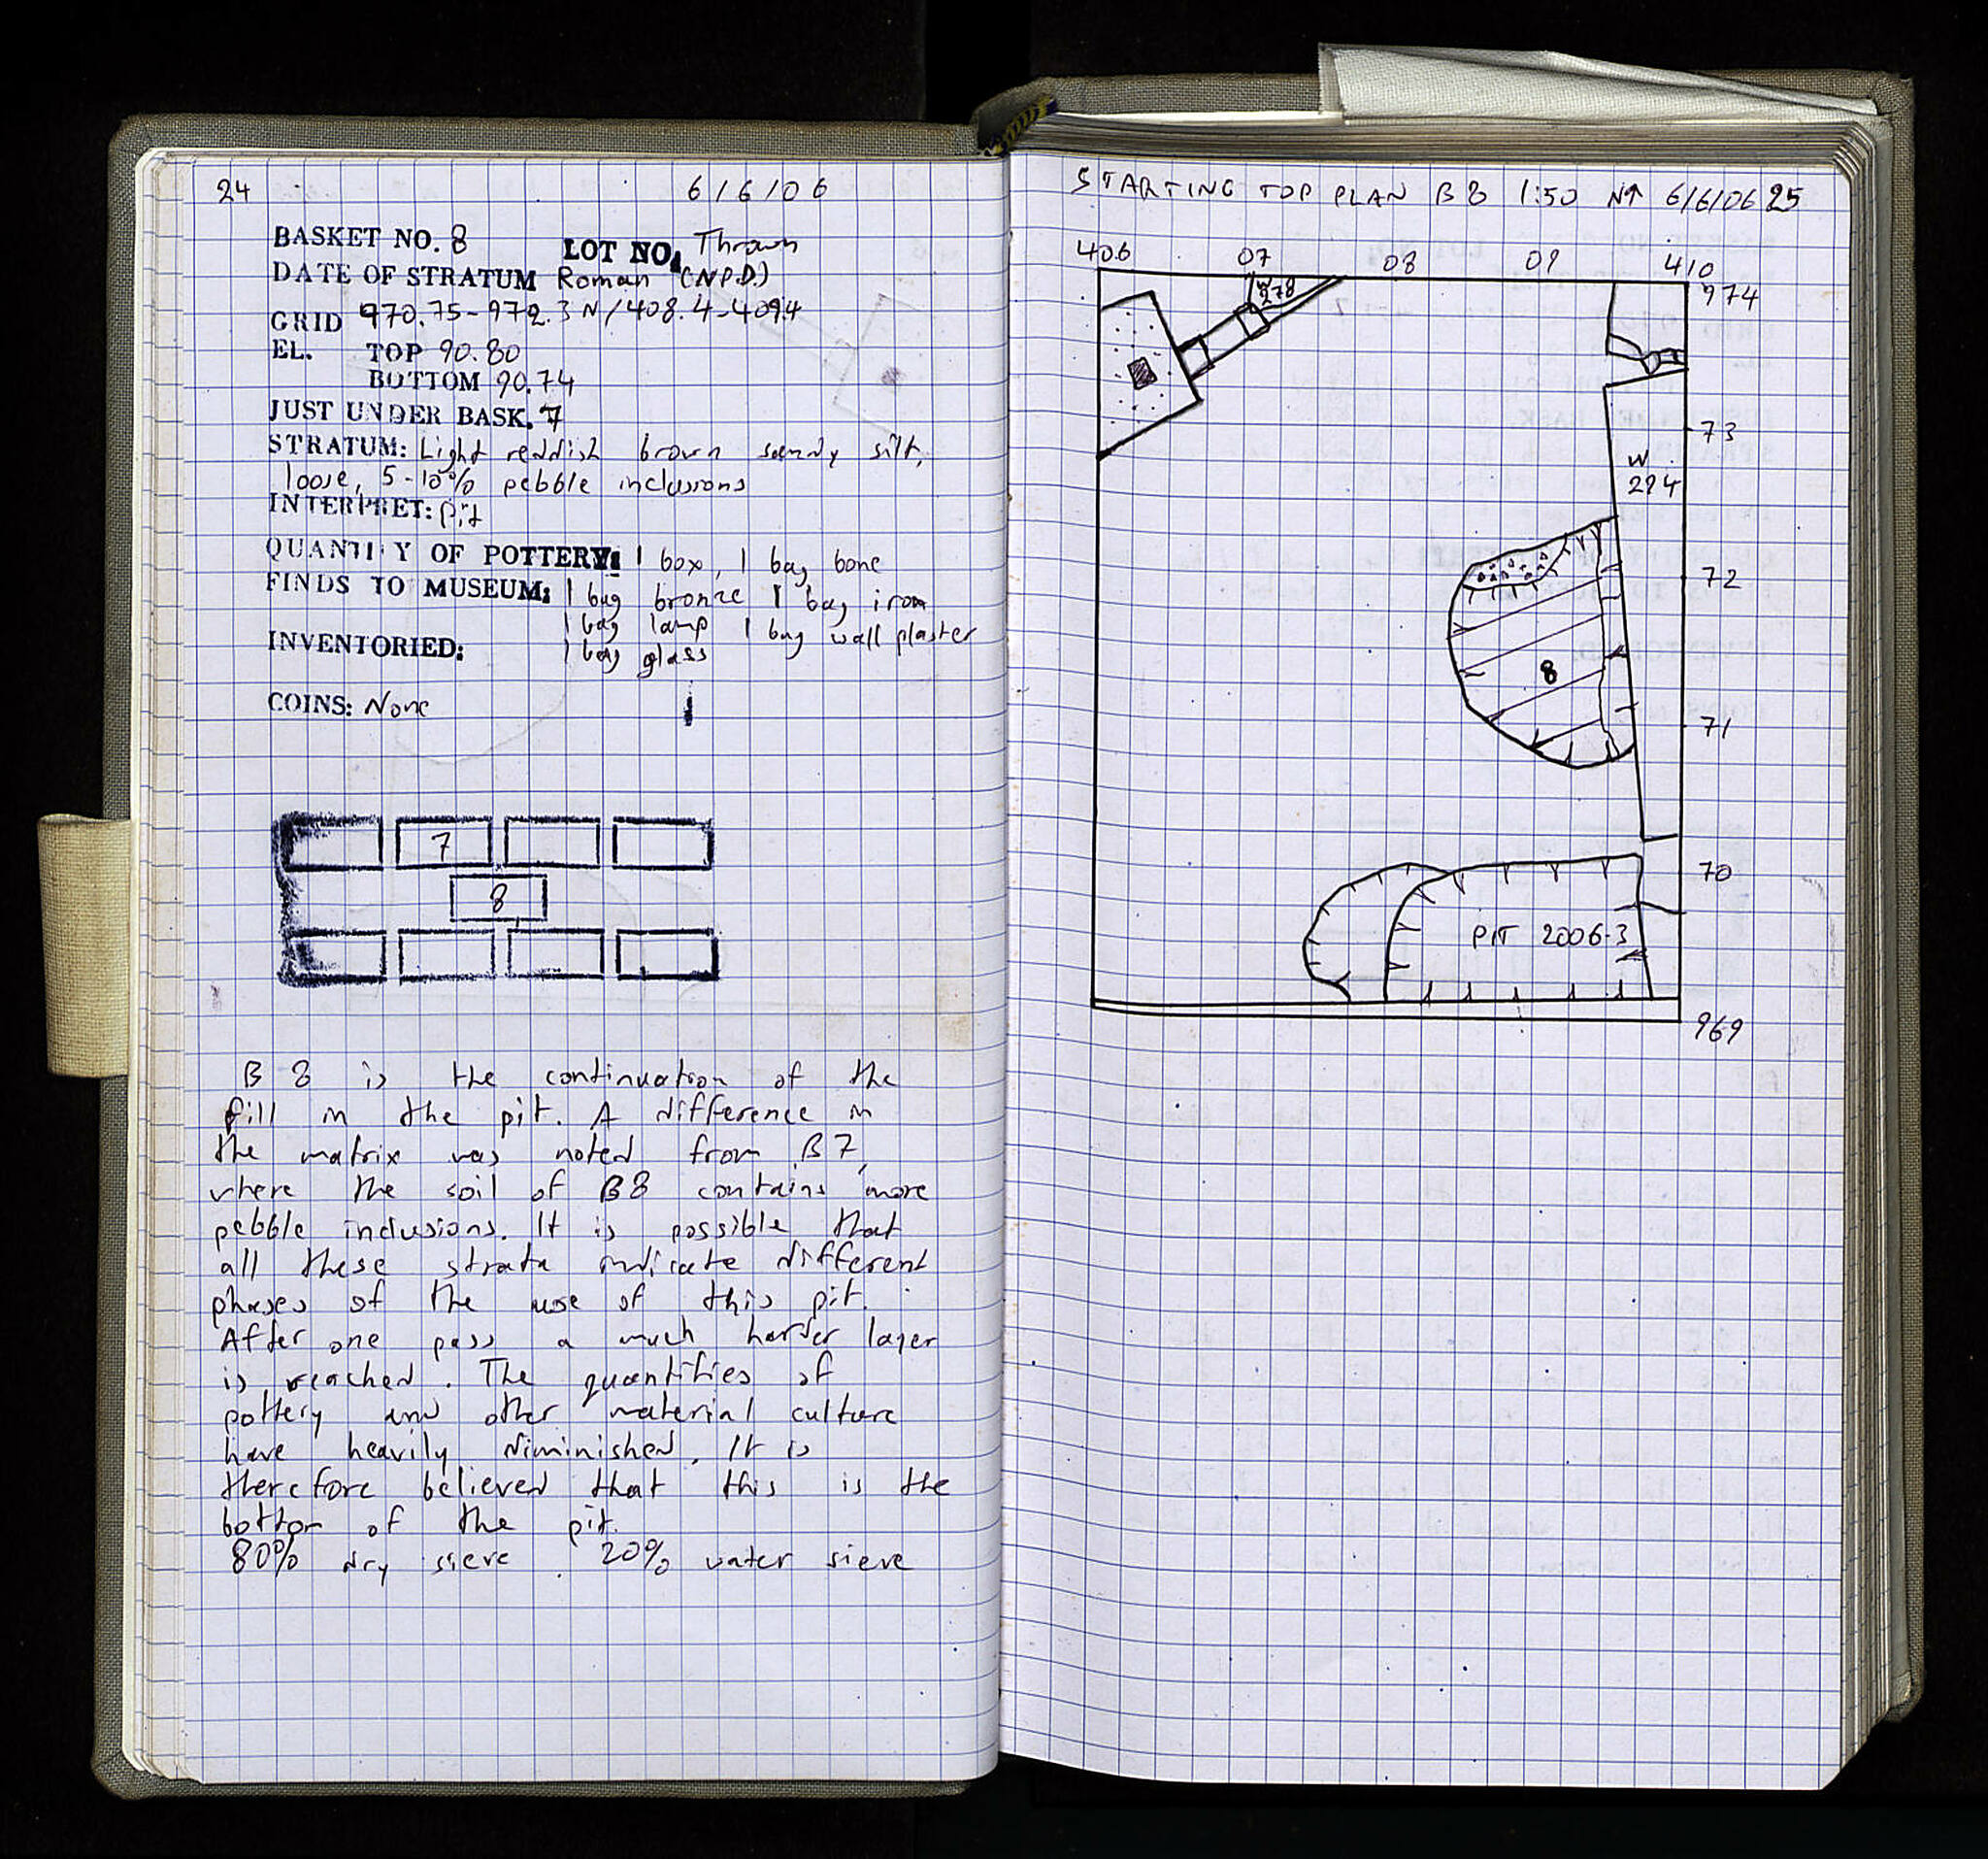 24 6/6/06
BASKET NO. 8 LOT NO. Thrown
DATE OF STRATUM Roman (N.P.D.)
GRID 970.75-972.3 N/408.4-409.4
EL. TOP 90.80
BOTTOM 90.74
JUST UNDER BASK. 7
STRATUM: Light reddish brown sandy silt,
loose, 5-10% pebble inclusions
INTERPRET: pit
QUANTITY OF POTTERY: 1 box, 1 bag bone
FINDS TO MUSEUM: 1 bag bronze 1 bag iron
1 bag lamp 1 bag wall plaster
INVENTORIED: 1 bag glass
COINS: None
7
8
B 8 is the continuation of the
fill in the pit. A difference in
the matrix was noted from B7,
where the soil of B8 contains more
pebble inclusions. It is possible that
all these strata indicate different
phases of the use of this pit.
After one pass a much harder layer
is reached. The quantities of
pottery and other material culture
have heavily diminished. It is
therefore believed that this is the
bottom of the pit.
80% dry sieve. 20% water sieve
STARTING TOP PLAN B8 1:50 N↑ 6/6/06 25
406 07 08 09 410
974
W
278
73
W
294
72
8
71
70
PIT 2006-3
969